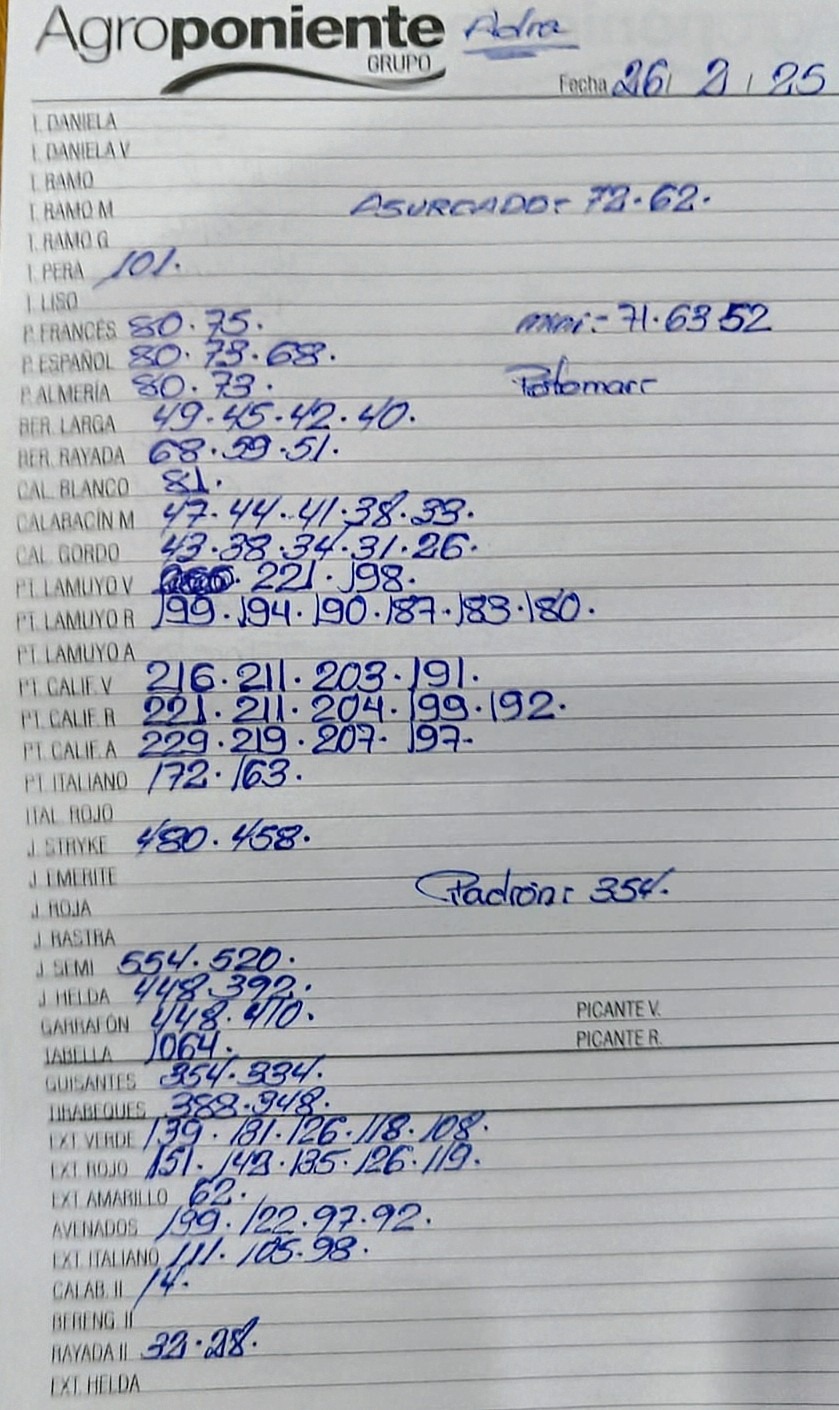 Agroponiente Adra
GRUPO
Fecha 26 / 2 / 25
T. DANIELA
T. DANIELA V
T. RAMO
T. RAMO M ASURCADO = 72 · 62 ·
T. RAMO G
T. PERA 101 ·
T. LISO
P. FRANCÉS 80 · 75 · mini = 71 · 63 52
P. ESPAÑOL 80 · 73 · 68 ·
P. ALMERÍA 80 · 73 ·
BER. LARGA 49 · 45 · 42 · 40 ·
BER. RAYADA 68 · 59 · 51 ·
CAL. BLANCO 81 ·
CALABACÍN M 47 · 44 · 41 · 38 · 33 ·
CAL. GORDO 43 · 38 · 34 · 31 · 26 ·
PT. LAMUYO V · 221 · 198 ·
PT. LAMUYO R 199 · 194 · 190 · 187 · 183 · 180 ·
PT. LAMUYO A
PT. CALIF. V 216 · 211 · 203 · 191 ·
PT. CALIF. R 221 · 211 · 204 · 199 · 192 ·
PT. CALIF. A 229 · 219 · 207 · 197 -
PT. ITALIANO 172 · 163 ·
ITAL. ROJO
J. STRYKE 480 · 458 ·
J. EMERITE
J. ROJA Padrón : 354 ·
J. RASTRA
J. SEMI 554 · 520 ·
J. HELDA 448 · 392 ·
GARRAFÓN 448 · 410 · PICANTE V.
TABELLA 1064 · PICANTE R.
GUISANTES 354 · 334 ·
TIRABEQUES 388 · 348 ·
EXT. VERDE 139 · 131 · 126 · 118 · 108 ·
EXT. ROJO 151 · 143 · 135 · 126 · 119 ·
EXT. AMARILLO 62 ·
AVENADOS 199 · 122 · 97 · 92 ·
EXT. ITALIANO 111 · 105 · 98 ·
CALAB. II 14 ·
BERENG. II
RAYADA II 32 · 28 ·
EXT. HELDA